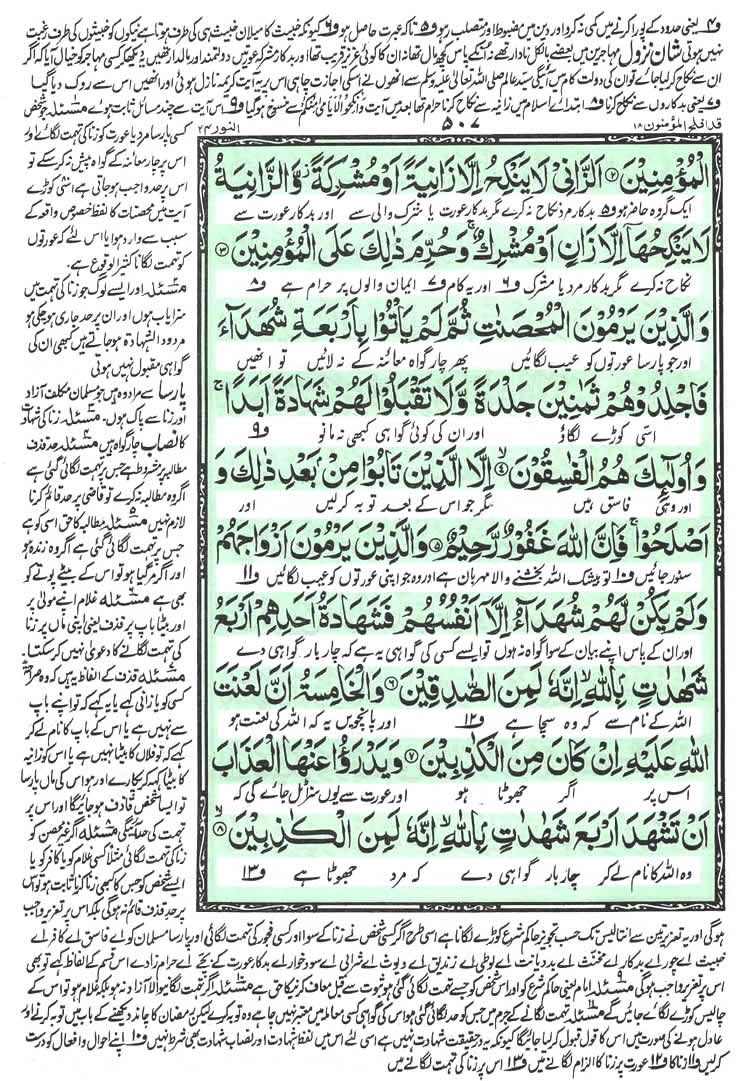 و۴ یعنی حدود کے پورا کرنے میں کمی نہ کرو اور دین میں مضبوط اور متصلب رہو و۵ تاکہ عبرت حاصل ہو و۶ کیونکہ خبیث کا میلان خبیث ہی کی طرف ہوتا ہے نیکوں کو خبیثوں کی طرف رغبت
نہیں ہوتی شان نزول مہاجرین میں بعضے بالکل نادار تھے نہ انکے پاس کچھ مال تھا نہ ان کا کوئی عزیز قریب تھا اور بدکار مشرکہ عورتیں دولتمند اور مالدار تھیں یہ دیکھ کر کسی مہاجر کو خیال آیا کہ اگر
ان سے نکاح کر لیا جائے تو ان کی دولت کام میں آئیگی سید عالم صلی اللہ تعالیٰ علیہ وسلم سے انھوں نے اسکی اجازت چاہی اس پر یہ آیت کریمہ نازل ہوئی اور انھیں اس سے روک دیا گیا
و۷ یعنی بدکاروں سے نکاح کرنا و۸ ابتدائے اسلام میں زانیہ سے نکاح کرنا حرام تھا بعد میں آیت وَاَنْکِحُوا الْاَیَامٰی مِنْکُمْ سے منسوخ ہو گیا و۹ اس آیت سے چند مسائل ثابت ہوئے مسئلہ جو شخص
قد افلح المؤمنون ۱۸
۵۰۷
النور ۲۴
الْمُؤْمِنِیْنَ ۲ اَلزَّانِیْ لَا یَنْكِحُ اِلَّا زَانِیَةً اَوْ مُشْرِكَةً ؗ وَّ الزَّانِیَةُ
ایک گروہ حاضر ہو و۵ بدکار مرد نکاح نہ کرے مگر بدکار عورت یا شرک والی سے اور بدکار عورت سے
لَا یَنْكِحُهَاۤ اِلَّا زَانٍ اَوْ مُشْرِكٌ ۚ وَ حُرِّمَ ذٰلِكَ عَلَى الْمُؤْمِنِیْنَ ۳
نکاح نہ کرے مگر بدکار مرد یا مشرک و۶ اور یہ کام و۷ ایمان والوں پر حرام ہے و۸
وَ الَّذِیْنَ یَرْمُوْنَ الْمُحْصَنٰتِ ثُمَّ لَمْ یَاْتُوْا بِاَرْبَعَةِ شُهَدَآءَ
اور جو پارسا عورتوں کو عیب لگائیں پھر چار گواہ معائنہ کے نہ لائیں تو انھیں
فَاجْلِدُوْهُمْ ثَمٰنِیْنَ جَلْدَةً وَّ لَا تَقْبَلُوْا لَهُمْ شَهَادَةً اَبَدًا ۚ
اسی کوڑے لگاؤ اور ان کی کوئی گواہی کبھی نہ مانو و۹
وَ اُولٰٓىٕكَ هُمُ الْفٰسِقُوْنَ ۴ اِلَّا الَّذِیْنَ تَابُوْا مِنْۢ بَعْدِ ذٰلِكَ وَ
اور وہی فاسق ہیں مگر جو اس کے بعد توبہ کر لیں اور
اَصْلَحُوْا ۚ فَاِنَّ اللّٰهَ غَفُوْرٌ رَّحِیْمٌ ۵ وَ الَّذِیْنَ یَرْمُوْنَ اَزْوَاجَهُمْ
سنور جائیں و۱۰ تو بیشک اللہ بخشنے والا مہربان ہے اور وہ جو اپنی عورتوں کو عیب لگائیں و۱۱
وَ لَمْ یَكُنْ لَّهُمْ شُهَدَآءُ اِلَّاۤ اَنْفُسُهُمْ فَشَهَادَةُ اَحَدِهِمْ اَرْبَعُ
اور ان کے پاس اپنے بیان کے سوا گواہ نہ ہوں تو ایسے کسی کی گواہی یہ ہے کہ چار بار گواہی دے
شَهٰدٰتٍۭ بِاللّٰهِ ۙ اِنَّهٗ لَمِنَ الصّٰدِقِیْنَ ۶ وَ الْخَامِسَةُ اَنَّ لَعْنَتَ
اللہ کے نام سے کہ وہ سچا ہے و۱۲ اور پانچویں یہ کہ اللہ کی لعنت ہو
اللّٰهِ عَلَیْهِ اِنْ كَانَ مِنَ الْكٰذِبِیْنَ ۷ وَ یَدْرَؤُا عَنْهَا الْعَذَابَ
اس پر اگر جھوٹا ہو اور عورت سے یوں سزا ٹل جائے گی کہ
اَنْ تَشْهَدَ اَرْبَعَ شَهٰدٰتٍۭ بِاللّٰهِ ۙ اِنَّهٗ لَمِنَ الْكٰذِبِیْنَ ۸
وہ اللہ کا نام لے کر چار بار گواہی دے کہ مرد جھوٹا ہے و۱۳
کسی پارسا مرد یا عورت کو زنا کی تہمت لگائے اور
اس پر چار معائنہ کے گواہ پیش نہ کر سکے تو
اس پر حد واجب ہو جاتی ہے اسی کوڑے
آیت میں محصنات کا لفظ خصوص واقعہ کے
سبب سے وارد ہوا یا اس لئے کہ عورتوں
کو تہمت لگانا کثیر الوقوع ہے۔
مسئلہ اور ایسے لوگ جو زنا کی تہمت میں
سزایاب ہوں اور ان پر حد جاری ہو چکی ہو
مردود الشہادۃ ہو جاتے ہیں کبھی ان کی
گواہی مقبول نہیں ہوتی
پارسا سے مراد وہ ہیں جو مسلمان مکلف آزاد
اور زنا سے پاک ہوں۔ مسئلہ زنا کی شہادت
کا نصاب چار گواہ ہیں مسئلہ حد قذف
مطالبہ پر مشروط ہے جس پر تہمت لگائی گئی ہے
اگر وہ مطالبہ نہ کرے تو قاضی پر حد قائم کرنا
لازم نہیں مسئلہ مطالبہ کا حق اسی کو ہے
جس پر تہمت لگائی گئی ہے اگر وہ زندہ ہو
اور اگر مر گیا ہو تو اس کے بیٹے پوتے کو
بھی ہے مسئلہ غلام اپنے مولیٰ پر
اور بیٹا باپ پر قذف یعنی اپنی ماں پر زنا
کی تہمت لگانے کا دعویٰ نہیں کر سکتا۔
مسئلہ قذف کے الفاظ یہ ہیں کہ وہ صراحۃً
کسی کو یا زانی کہے یا یہ کہے کہ تو اپنے باپ
سے نہیں ہے یا اس کے باپ کا نام لے کر
کہے کہ تو فلاں کا بیٹا نہیں ہے یا اس کو زانیہ
کا بیٹا کہہ کر پکارے اور ہو اس کی ماں پارسا
تو ایسا شخص قاذف ہو جائیگا اور اس پر
تہمت کی حد آئیگی مسئلہ اگر غیر محصن کو
زنا کی تہمت لگائی مثلاً کسی غلام کو یا کافر کو یا
ایسے شخص کو جس کا کبھی زنا کرنا ثابت ہو تو اس
پر حد قذف قائم نہ ہوگی بلکہ اس پر تعزیر واجب
ہوگی اور یہ تعزیر تین سے انتالیس تک حسب تجویز حاکم شرع کوڑے لگانا ہے اسی طرح اگر کسی شخص نے زنا کے سوا اور کسی فجور کی تہمت لگائی اور پارسا مسلمان کو اے فاسق اے کافر اے
خبیث اے چور اے بدکار اے مخنث اے بددیانت اے لوطی اے زندیق اے دیوث اے شرابی اے سود خوار اے بدکار عورت کے بچے اے حرام زادے اس قسم کے الفاظ کہے تو بھی
اس پر تعزیر واجب ہوگی مسئلہ امام یعنی حاکم شرع کو اور اس شخص کو جسے تہمت لگائی گئی ہو ثبوت سے قبل معاف کرنیکا حق ہے مسئلہ اگر تہمت لگانیوالا آزاد نہ ہو بلکہ غلام ہو تو اس کے
چالیس کوڑے لگائے جائیں گے مسئلہ تہمت لگانے کے جرم میں جس کو حد لگائی گئی ہو اس کی گواہی کسی معاملہ میں معتبر نہیں چاہے وہ توبہ کرے لیکن رمضان کا چاند دیکھنے کے باب میں توبہ کرنے اور
عادل ہونے کی صورت میں اس کا قول قبول کر لیا جائیگا کیونکہ یہ درحقیقت شہادت نہیں ہے اسی لئے اس میں لفظ شہادت اور نصاب شہادت بھی شرط نہیں و۱۰ اپنے احوال و افعال کو درست
کر لیں و۱۱ زنا کا و۱۲ عورت پر زنا کا الزام لگانے میں و۱۳ اس پر زنا کی تہمت لگانے میں